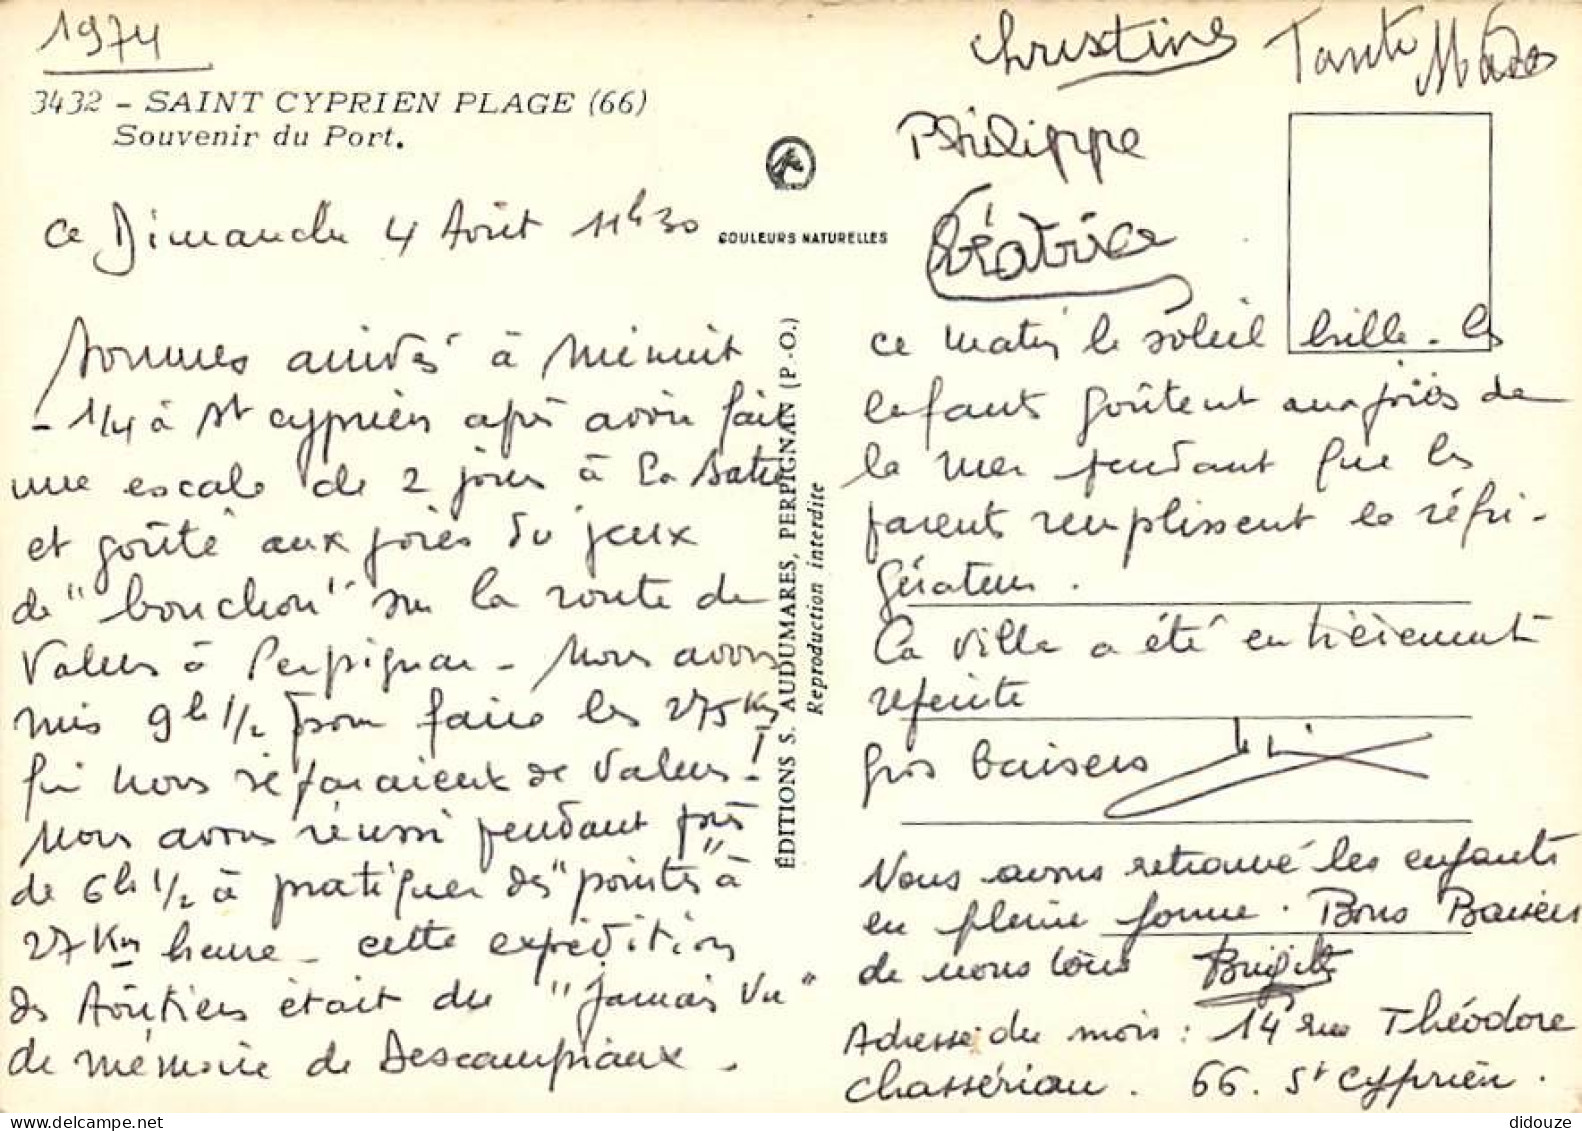 1974
3432 - SAINT CYPRIEN PLAGE (66)
Souvenir du Port.
ce Dimanche 4 Août 11h30
Sommes arrivés à Minuit
- 1/4 à St Cyprien après avoir fait
une escale de 2 jours à La
et goûté aux joies du jeux
de "bouchon" sur la route de
Valras à Perpignan - Nous avons
mis 9h 1/2 pour faire les 275 Km
qui nous séparaient de Valras !
Nous avons réussi pendant près
de 6h 1/2 à pratiquer des "pointes" à
27 Km heure - cette expédition
des Aoûtiens était du "Jamais Vu"
de mémoire de Descampiaux.
COULEURS NATURELLES
ÉDITIONS S. AUDUMARES, PERPIGNAN (P.-O.)
Reproduction interdite
Christine Tante
Philippe
Béatrice
ce matin le soleil brille - les
enfants goûtent aux joies de
la mer pendant que les
parents remplissent le réfri-
gérateur.
La ville a été entièrement
refaite
gros baisers
Nous avons retrouvé les enfants
en pleine forme. Bons Baisers
de nous tous Brigitte
Adresse du mois : 14 rue Théodore
Chassériau. 66. St Cyprien.
didouze